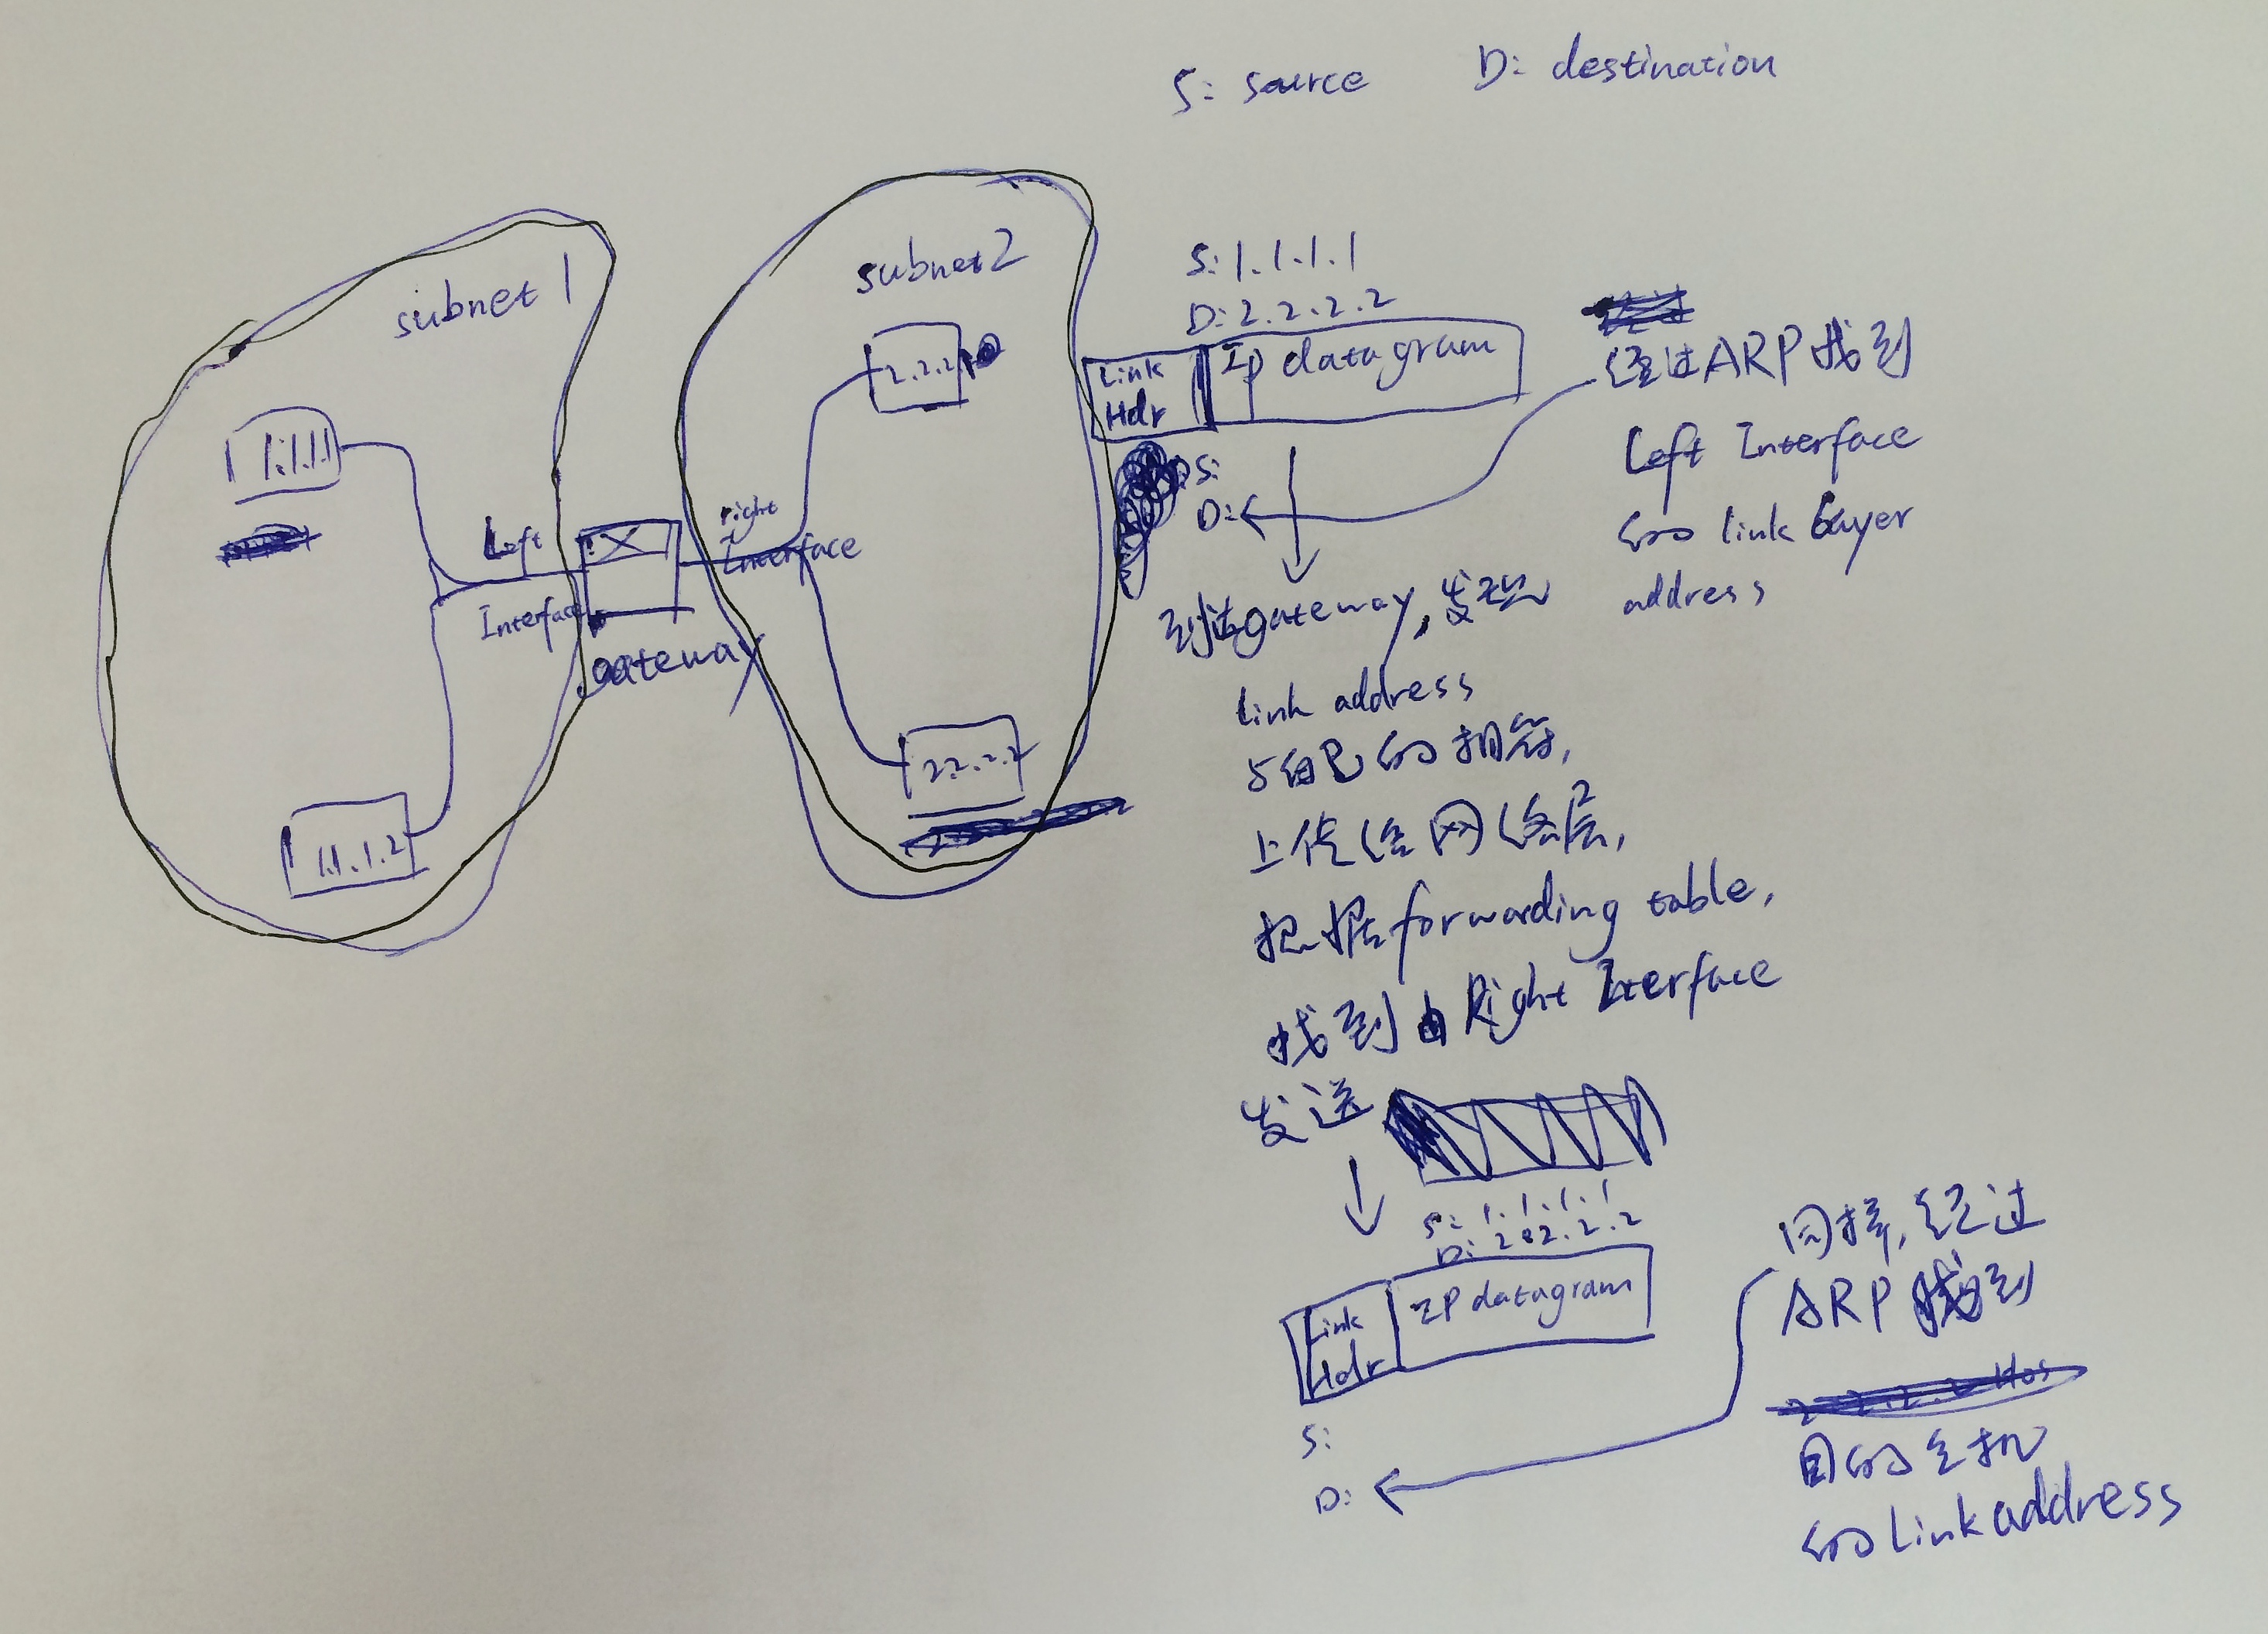 S: source
D: destination
subnet 1
1.1.1.1
Left
Interface
1.1.1.2
gateway
subnet2
2.2.2.1
right
Interface
2.2.2.2
S: 1.1.1.1
D: 2.2.2.2
Link
Hdr
Ip datagram
S:
D:
经过ARP找到
Left Interface
的 link layer
address
到达gateway,发现
link address
与自己的相符,
上传给网络层,
根据forwarding table,
找到由Right Interface
发送
S: 1.1.1.1
D: 2.2.2.2
Link
Hdr
IP datagram
S:
D:
同样,经过
ARP 找到
目的主机
的Link address